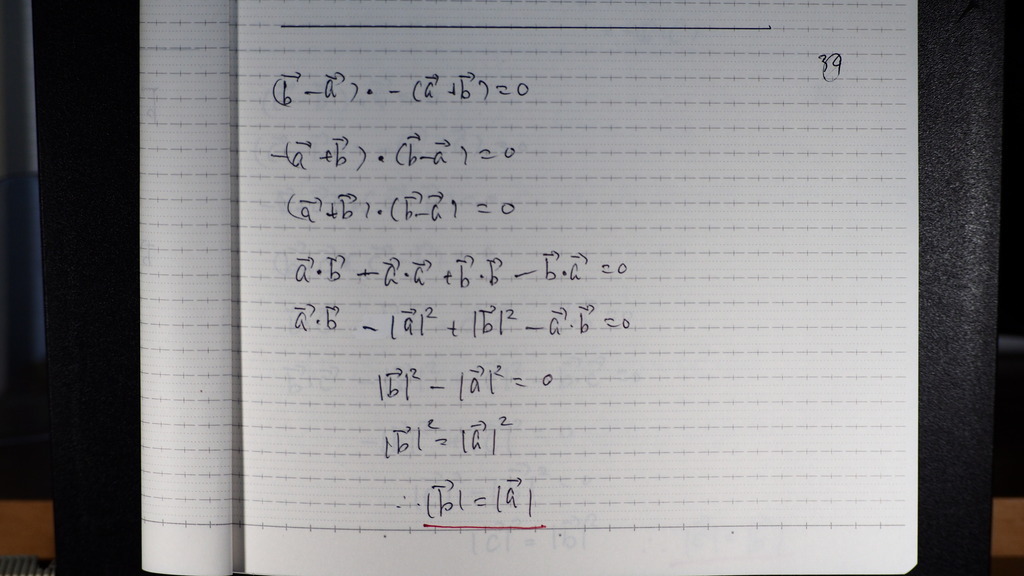 39
(b⃗ - a⃗) · -(a⃗ + b⃗) = 0
-(a⃗ + b⃗) · (b⃗ - a⃗) = 0
(a⃗ + b⃗) · (b⃗ - a⃗) = 0
a⃗ · b⃗ - a⃗ · a⃗ + b⃗ · b⃗ - b⃗ · a⃗ = 0
a⃗ · b⃗ - |a⃗|² + |b⃗|² - a⃗ · b⃗ = 0
|b⃗|² - |a⃗|² = 0
|b⃗|² = |a⃗|²
∴ |b⃗| = |a⃗|